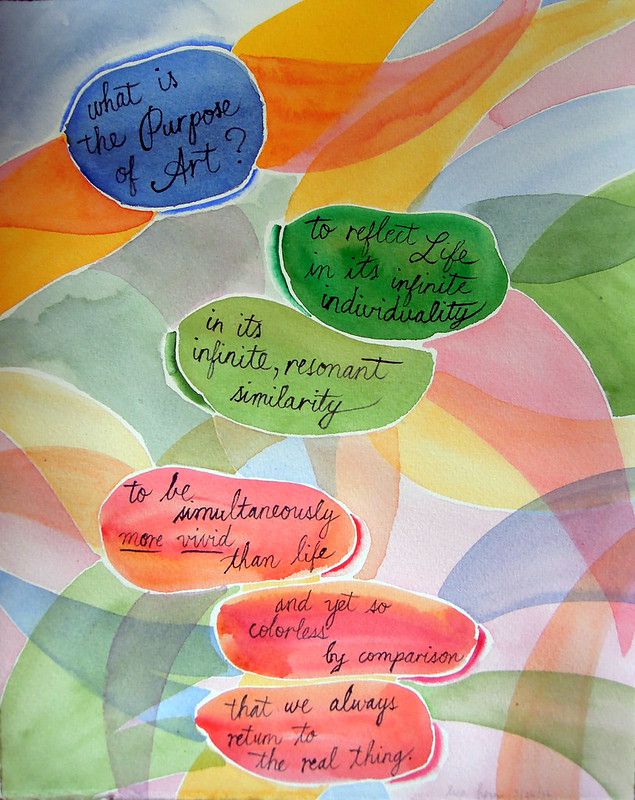 what is
the Purpose
of Art?
to reflect Life
in its infinite
individuality
in its
infinite, resonant
similarity
to be
simultaneously
more vivid
than life
and yet so
colorless
by comparison
that we always
return to
the real thing.